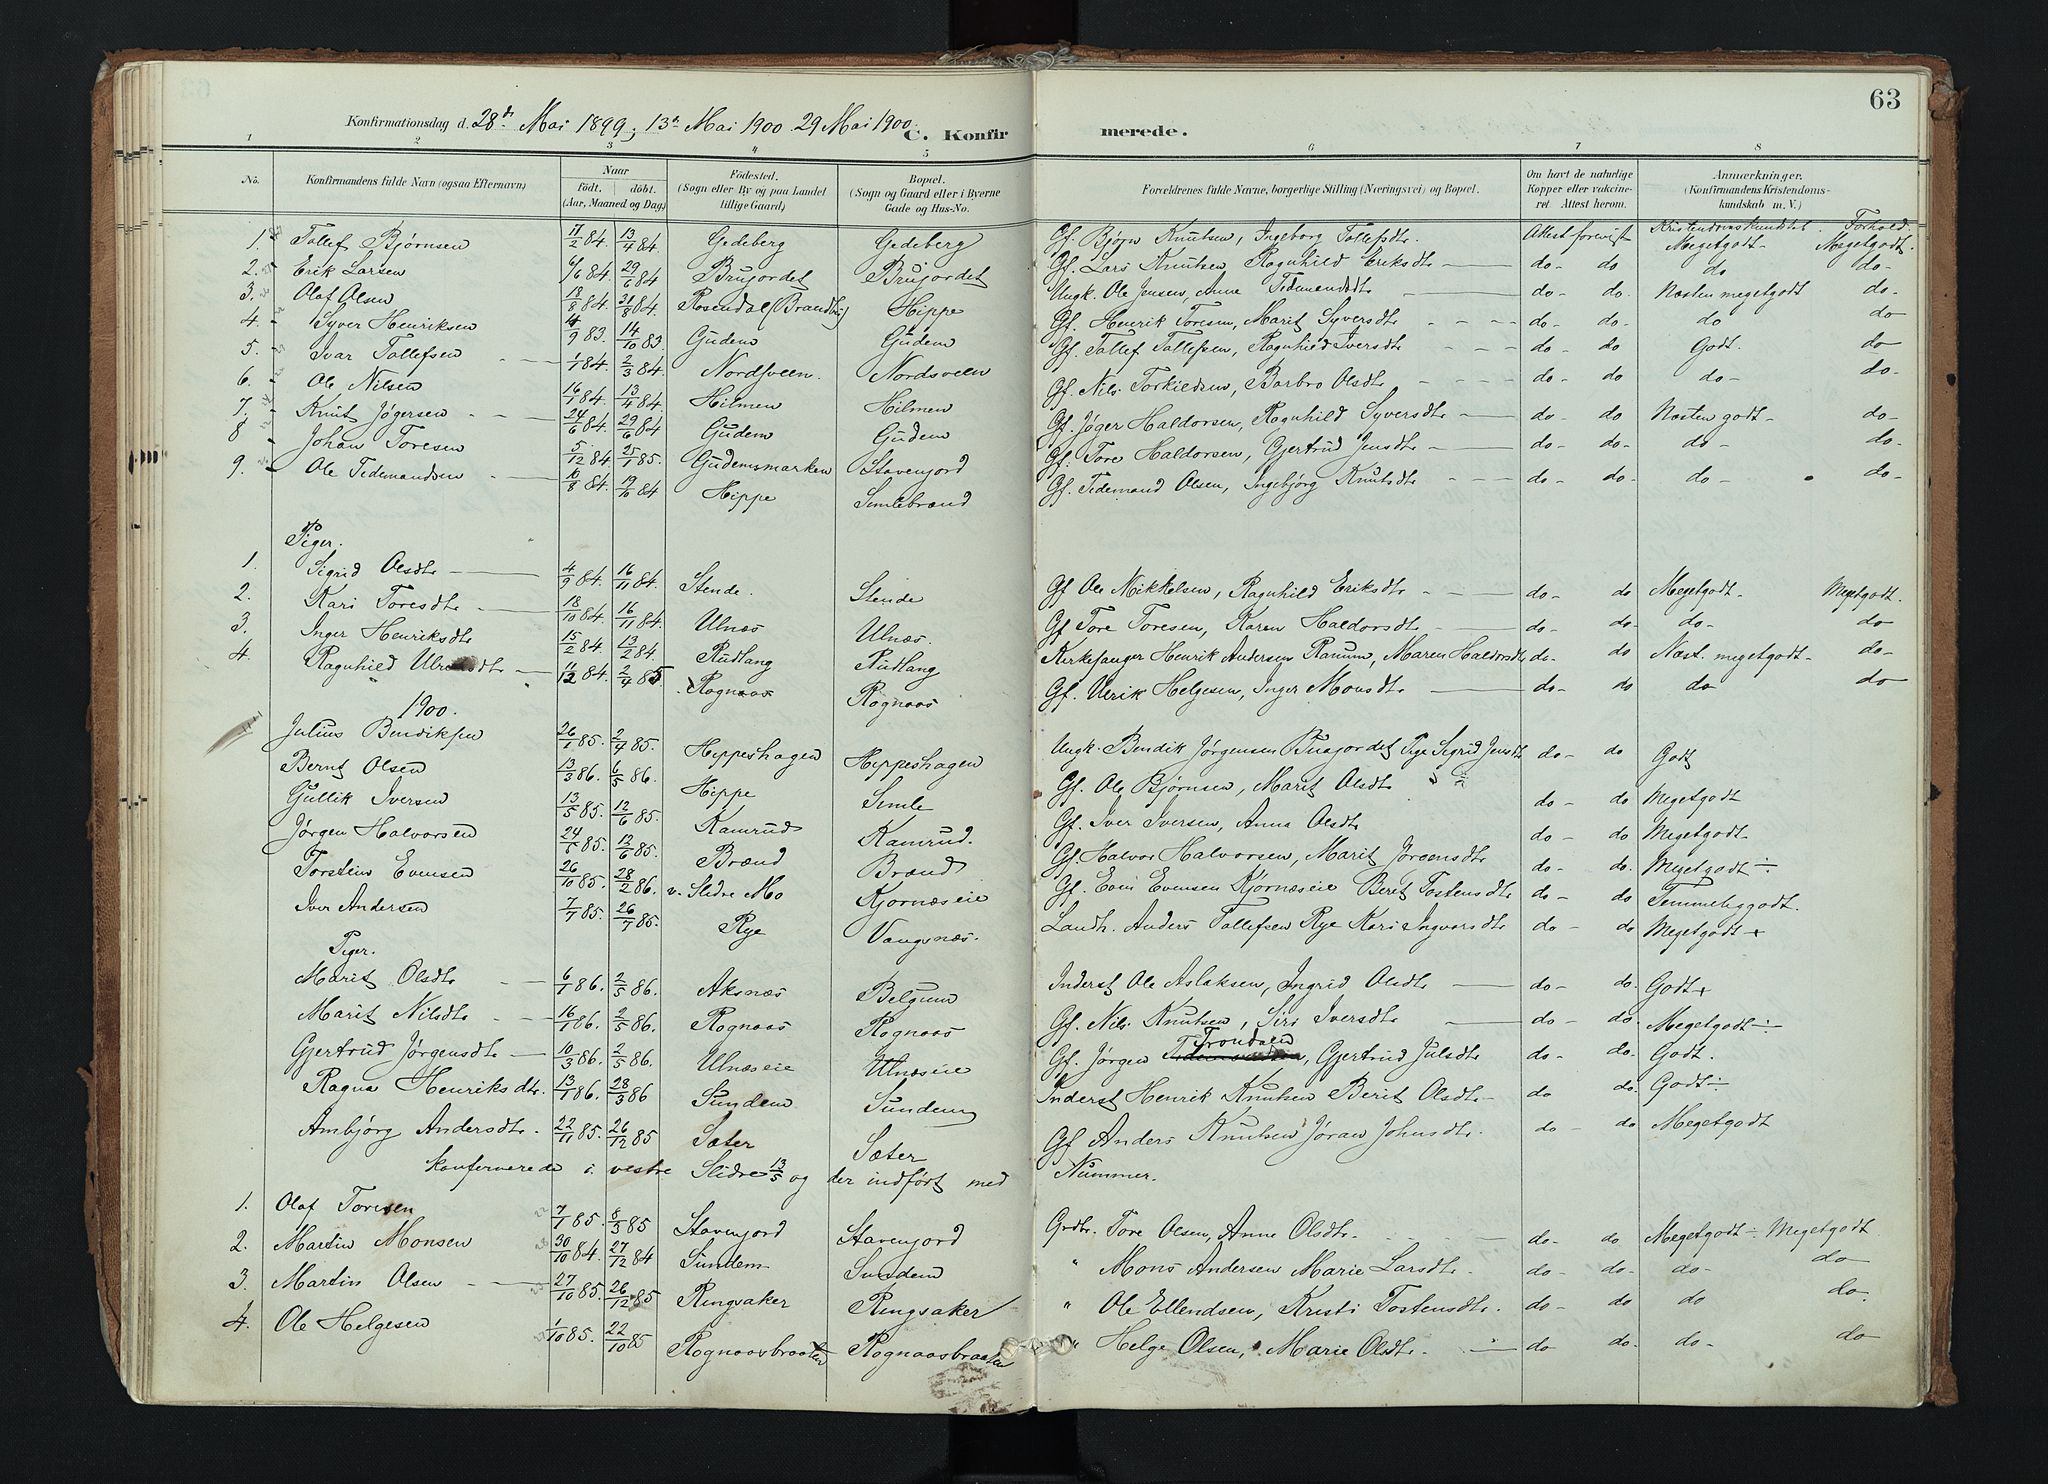 63
Konfirmationsdag d. 28de Mai 1899, 13de Mai 1900. 29 Mai 1900.
C. Konfirmerede.
1 2 3 4 5 6 7 8
No. Konfirmandens fulde Navn (ogsaa Efternavn) Naar født. døbt. (Aar, Maaned og Dag) Fødested. (Sogn eller By og paa Landet tillige Gaard) Bopæl. (Sogn og Gaard eller i Byerne Gade og Hus-No. Forældrenes fulde Navne, borgerlige Stilling (Næringsvei) og Bopæl. Om havt de naturlige Kopper eller vaccineret. Attest herom. Anmærkninger. (Konfirmandens Kristendomskundskab m. V.)
Kristendomskundskab Forhold.
1. Tollef Bjørnsen 11/2 84. 13/4 84. Gedeberg Gedeberg Gf. Bjørn Knutsen, Ingeborg Tollefsdtr. Attest forevist Megetgodt Megetgodt.
2. Erik Larsen 6/6 84. 29/6 84 Brujordet Brujordet Gf. Lars Knutsen, Ragnhild Eriksdtr do- do do do-
3. Olaf Olsen 13/8 84. 31/8 84. Rosendal (Brandbu) Hippe Ungk. Ole Jensen, Anne Tidemandsdtr do- do. Næsten megetgodt do-
4. Syver Henriksen 9 83. 14/10 83 Gudem Gudem Gf. Henrik Toresen, Marit Syversdtr do- do- do do
5. Ivar Tollefsen 1/1 84. 2/3 84. Nordsveen. Nordsveen Gf. Tollef Tollefsen, Ragnhild Iversdtr do- do Godt. do
6. Ole Nilsen 16/1 84. 13/4 84. Hilmen Hilmen Gf. Nils Torkildsen, Barbro Olsdtr do- do do- do-
7. Knut Jøgersen 24/6 84. 29/6 84 Gudem Gudem Gf. Jøger Haldorsen, Ragnhild Syversdtr do- do Næsten godt- do-
8 Johan Toresen 5/12 84. 25/1 85. Gudemsmarken Stavenjord Gf. Tore Haldorsen, Gjertrud Jensdtr do- do- do- do-
9. Ole Tidemandsen 10/8 84. 19/10 84 Hippe Simlebrænd Gf. Tidemand Olsen, Ingebjørg Knutsdtr do- do- do- do-
Piger.
1. Sigrid Olsdtr 4/9 84. 16/11 84. Stende. Stende Gf Ole Nikkelsen, Ragnhild Eriksdtr do- do Megetgodt- Megetgodt.
2. Kari Toresdtr 18/10 84. 16/11 84. Ulnæs Ulnæs. Gf Tore Toresen, Karen Haldorsdtr do- do. do- do
3. Inger Henriksdtr 15/2 84. 13/2 84. Rudlang Rudlang Kirkesanger Henrik Andersen Ranum, Maren Haldorsdtr do- do Næst. megetgodt- do-
4. Ragnhild 11/12 84. 2/4 85 Rognaas Rognaas Gf. Ulrik Helgesen, Inger Monsdtr do- do do do
1900.
Julius Bendiksen 26/1 85. 2/4 85. Hippeshagen Hippeshagen Ungk. Bendik Jørgensen Brujordet Pige Sigrid Jensdtr do- do Godt
Bernt Olsen 13/3 86. 6/5 86. Hippe Simle Gf. Ole Bjørnsen, Marit Olsdtr do- do Megetgodt
Gullik Iversen 13/5 85. 12/6 85. Kamrud Kamrud. Gf. Iver Iversen, Anna Olsdtr do- do Megetgodt-
Jørgen Halvorsen 24/5 85. 12/6 85. Brænd Brænd Gf. Halvor Halvorsen, Marit Jørgensdtr do- do. Megetgodt÷
Torstein Evensen 26/10 85. 28/2 86. v. Slidre Mo Kjørnæseie Gf. Even Evensen Kjørnæseie Berit Tostensdtr do- do Temmeliggodt.
Iver Andersen 7/7 85. 26/7 85. Rye Vangsnæs. Landh. Anders Tollefsen Rye Kari Ingvarsdtr do- do Megetgodt+
Piger.
Marit Olsdtr 6/1 86. 2/5 86. Aksnæs Belgum Inderst Ole Aslaksen, Ingrid Olsdtr do- do. Godt+
Marit Nilsdtr 16/1 86. 2/5 86. Rognaas Rognaas Gf. Nils Knutsen, Siri Iversdtr do- do. Megetgodt÷
Gjertrud Jørgensdtr 10/3 86. 2/5 86. Ulnæseie Ulnæseie Gf. Jørgen Trondsen, Gjertrud Julsdtr do- do. Godt.
Ragna Henriksdtr. 13/1 86. 28/3 86 Sundem Sundem Inderst Henrik Knutsen Berit Olsdtr- do do. Godt÷
Ambjørg Andersdtr. 22/11 85. 26/12 85 Sæter Sæter Gf Anders Knutsen Jøran Johnsdtr. do- do Megetgodt
Konfirmerede i vestre Slidre 13/5 og der indført med Nummer.
1. Olaf Toresen 7/1 85. 8/3 85 Stavenjord Stavenjord Grdbr. Tore Olsen, Anne Olsdtr. do- do. Megetgodt÷ Megetgodt.
2. Martin Monsen 30/10 84. 27/12 84 Sundem Sundem " Mons Andersen Marie Larsdtr. do- do- do- do
3. Martin Olsen 27/10 85. 26/12 85 Ringsaker Ringsaker " Ole Ellendsen, Kristi Tostensdtr. do- do- do do.
4. Ole Helgesen 1/10 85. 22/10 85 Rognaasbraaten Rognaasbraaten " Helge Olsen, Marie Olsdtr. do do- do- do